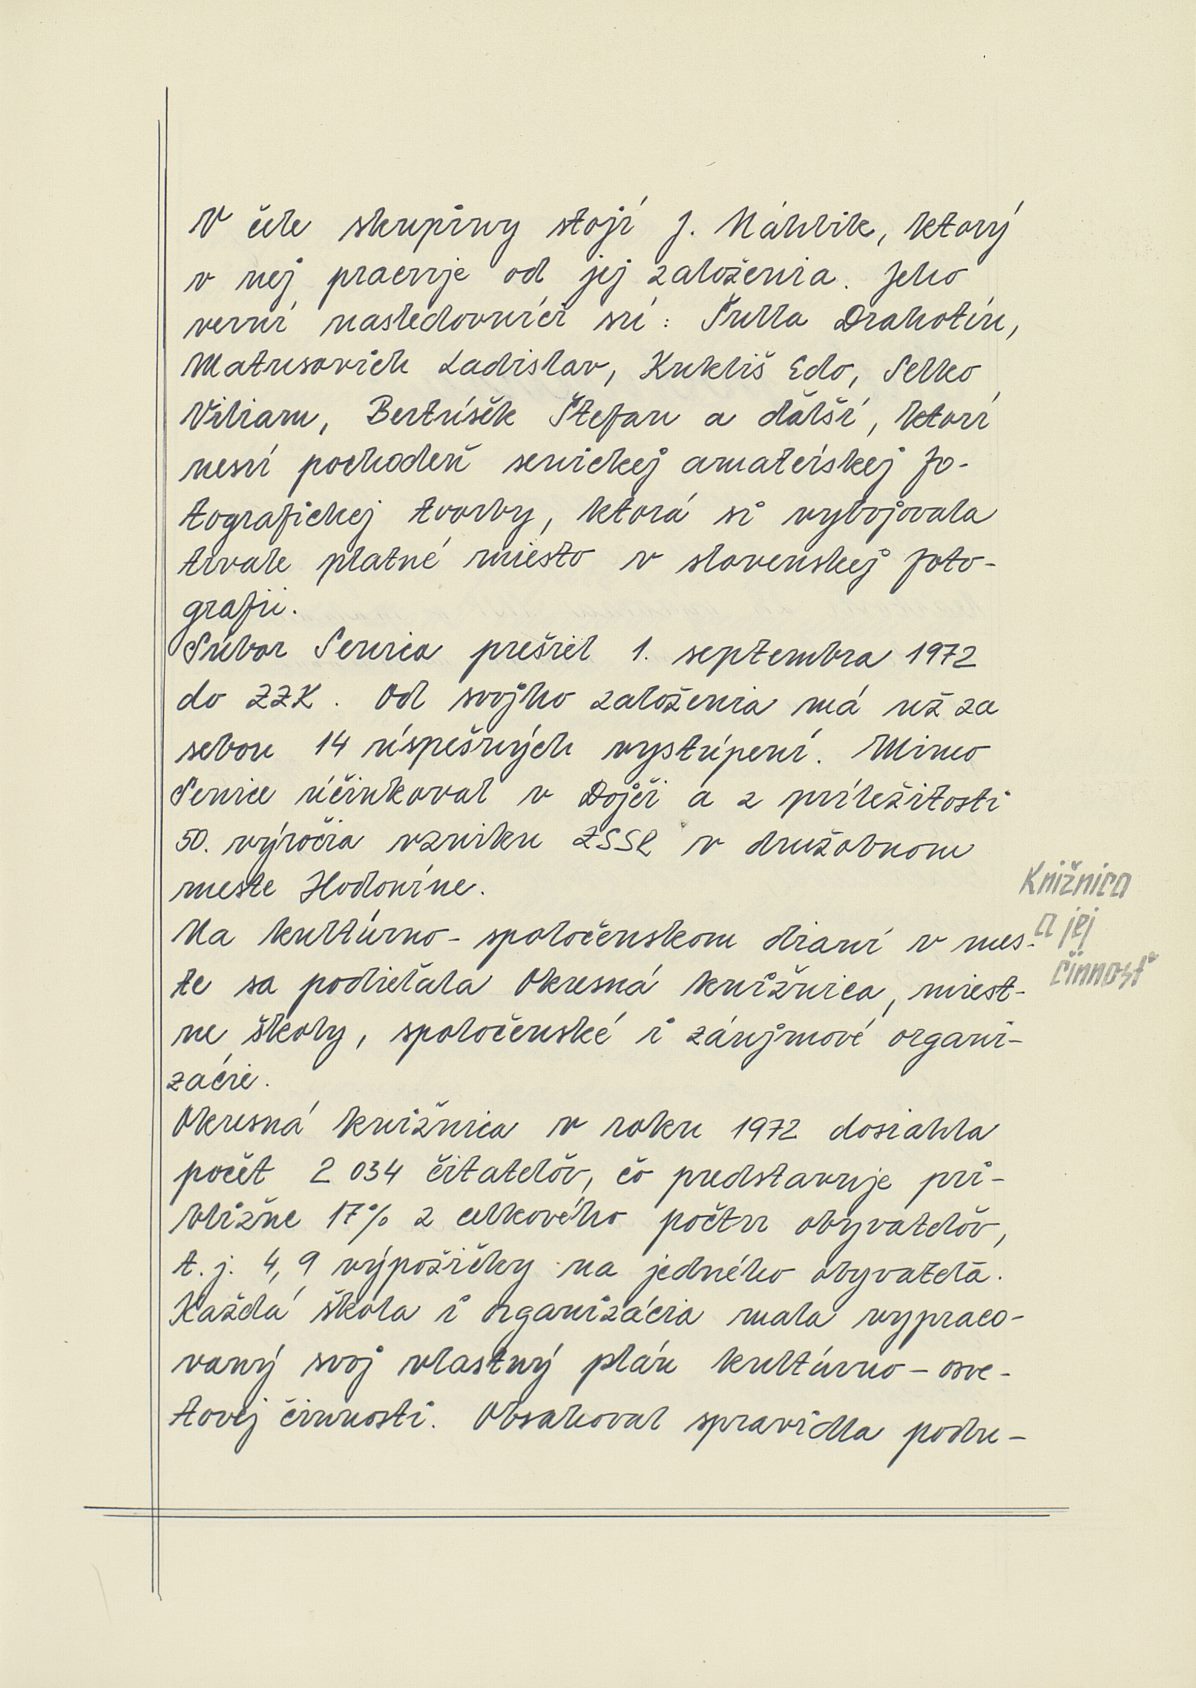 V čele skupiny stojí J. Náhlik, ktorý
v nej pracuje od jej založenia. Jeho
verní nasledovníci sú: Šulla Drahotín,
Matusovich Ladislav, Kukliš Edo, Selko
Viliam, Bertúšek Štefan a ďalší, ktorí
nesú pochodeň senickej amatérskej fo-
tografickej tvorby, ktorá si vybojovala
trvale platné miesto v slovenskej foto-
grafii.
Súbor Senica prešiel 1. septembra 1972
do ZZK. Od svojho založenia má už za
sebou 14 úspešných vystúpení. Mimo
Senice účinkoval v Dojči a z príležitosti
50. výročia vzniku ZSSR v družobnom
meste Hodoníne.
Na kultúrno-spoločenskom dianí v mes-
te sa podieľala Okresná knižnica, miest-
ne školy, spoločenské i záujmové organi-
zácie.
Knižnica
a jej
činnosť
Okresná knižnica v roku 1972 dosiahla
počet 2 034 čitateľov, čo predstavuje pri-
bližne 17% z celkového počtu obyvateľov,
t.j. 4,9 výpožičky na jedného obyvateľa.
Každá škola i organizácia mala vypraco-
vaný svoj vlastný plán kultúrno-osve-
tovej činnosti. Obsahoval spravidla podu-